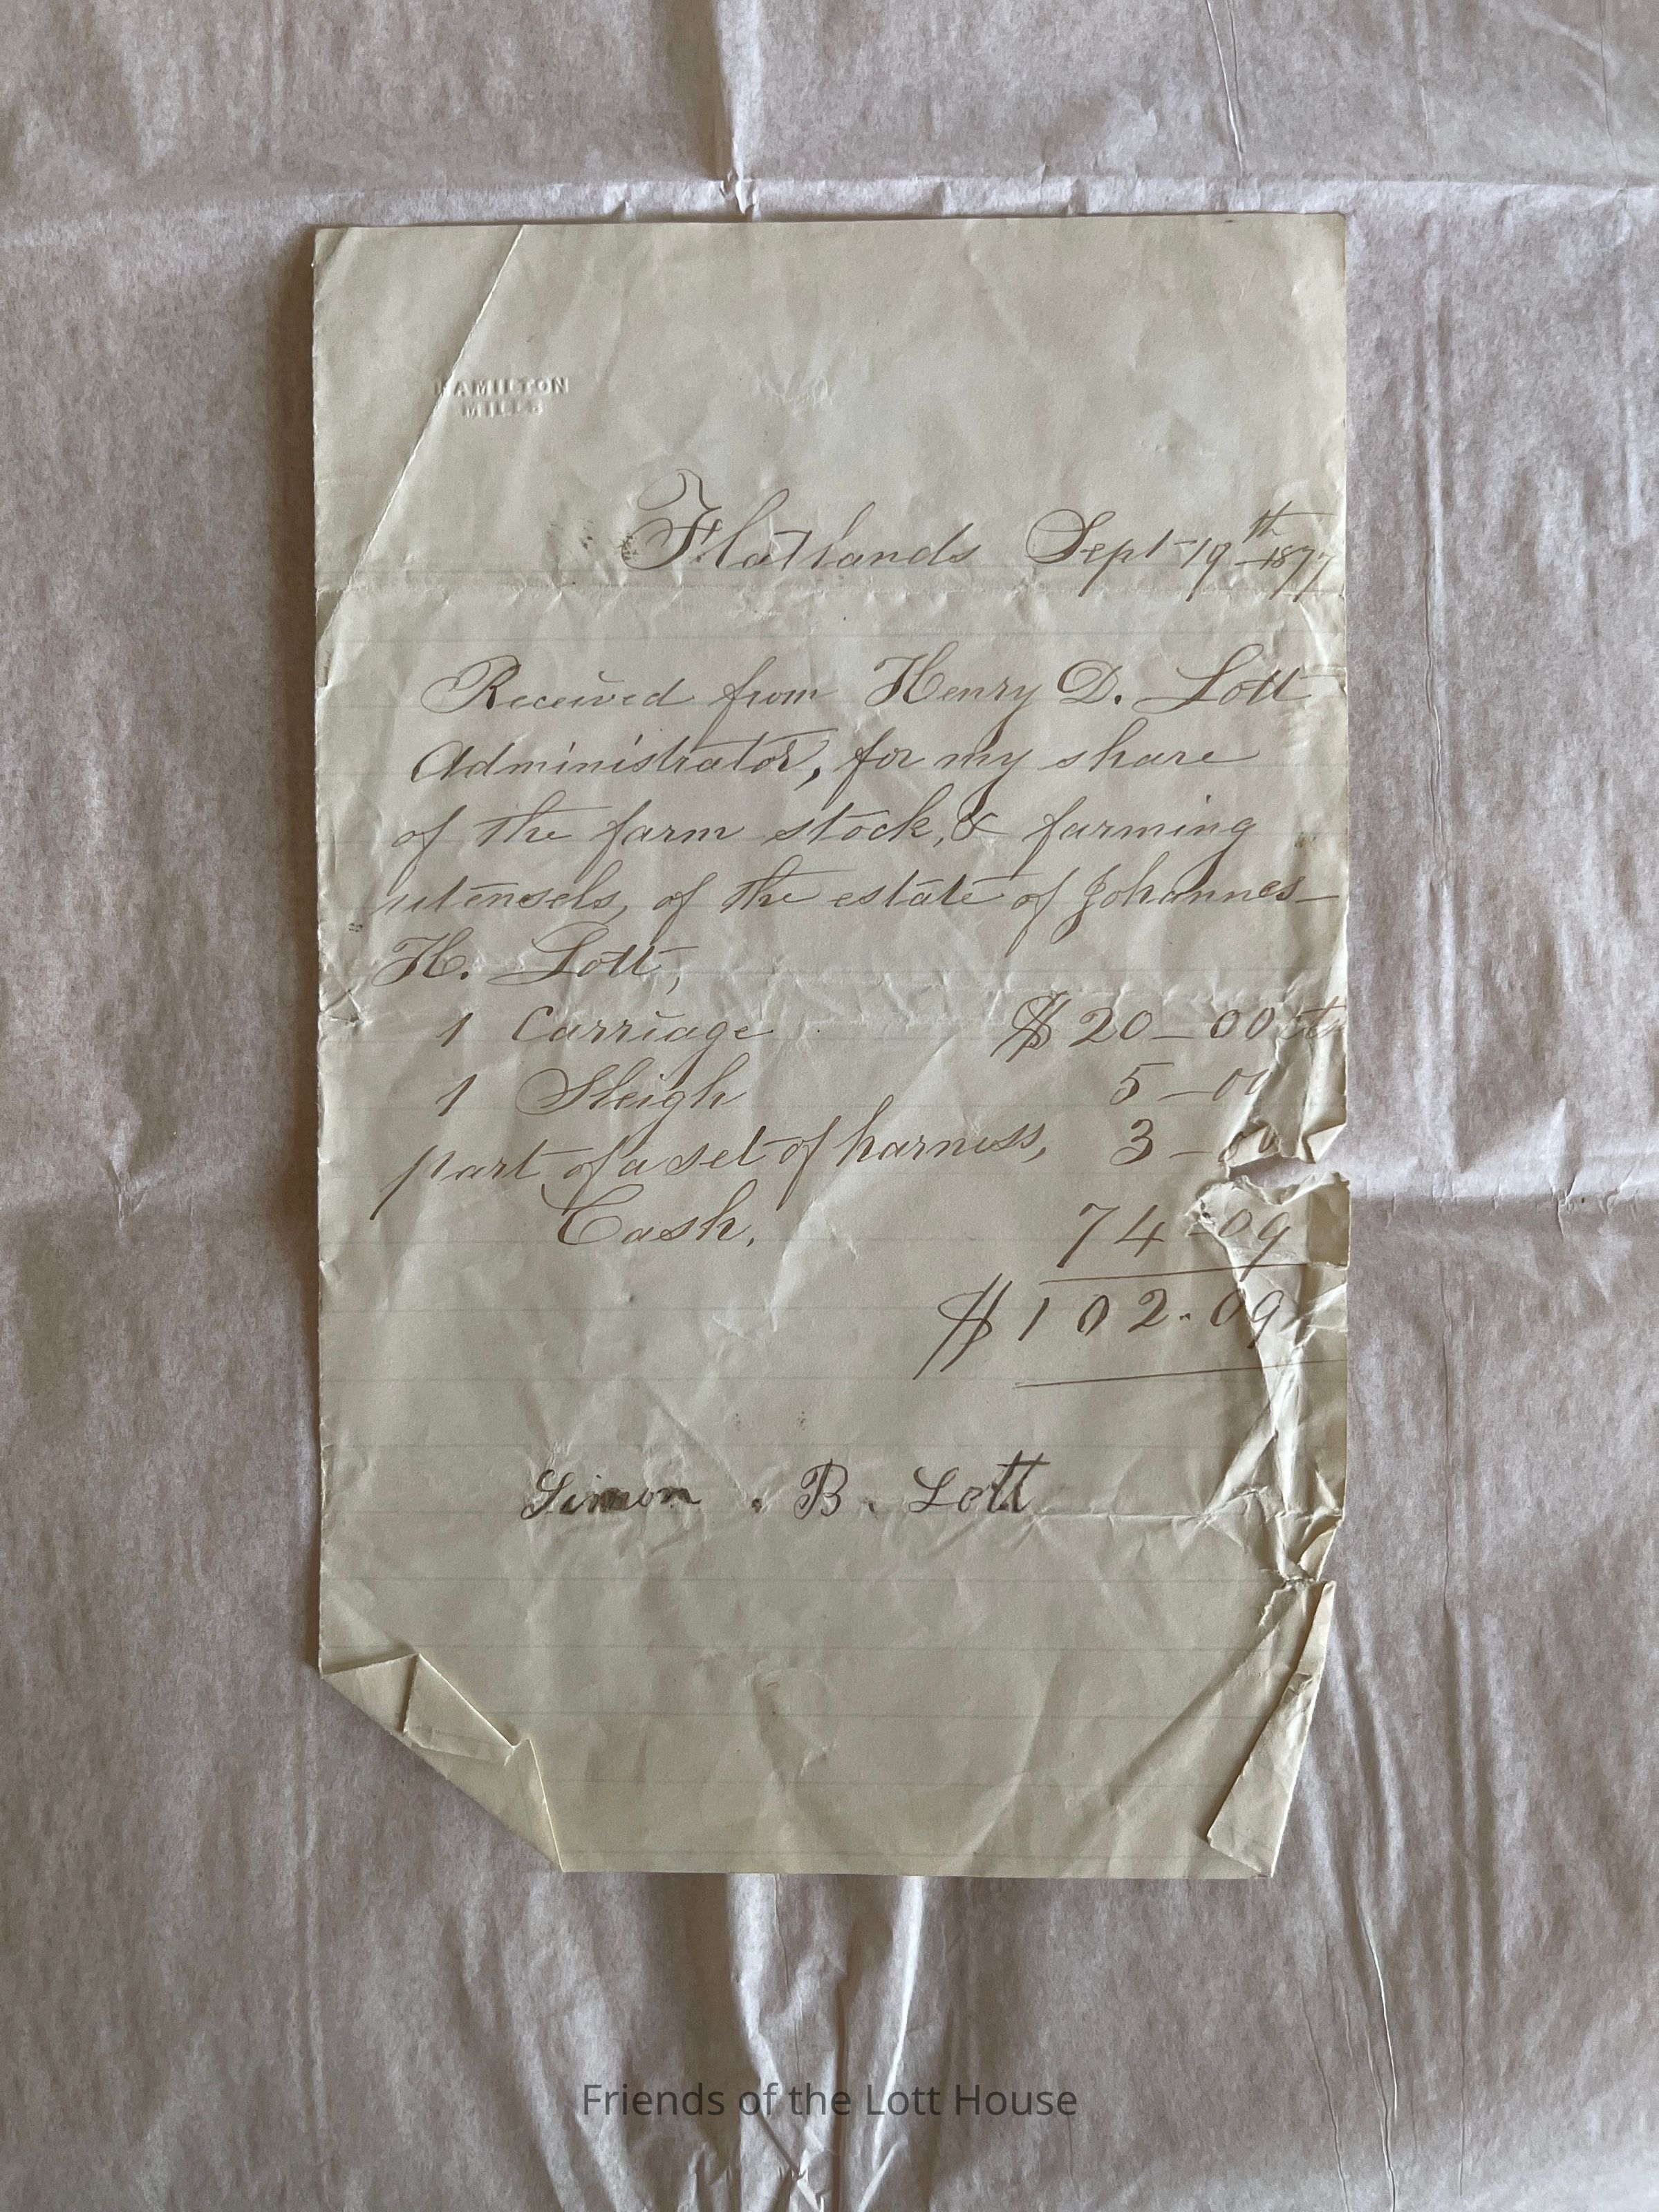 HAMILTON
MILLS
Flatlands Sept 19th 1877
Received from Henry D. Lott
Administrator, for my share
of the farm stock, & farming
utensels, of the estate of Johannes
H. Lott,
1 Carriage $ 20–00 cts
1 Sleigh 5–00
part of a set of harness, 3–00
Cash, 74–09
$ 102.09
Simon . B. Lott
Friends of the Lott House